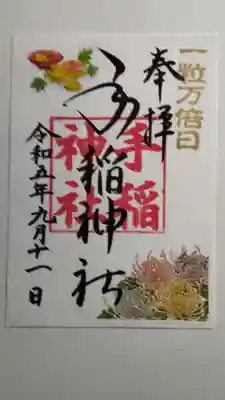 一粒万倍日
奉拝
手稲神社
手稲神社
令和五年九月十一日